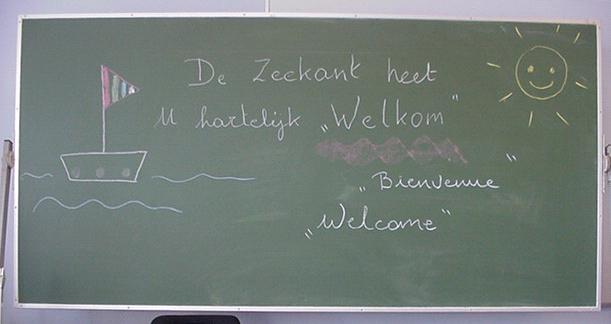 De Zeekant heet
U hartelijk „Welkom"
„Bienvenue"
„Welcome"